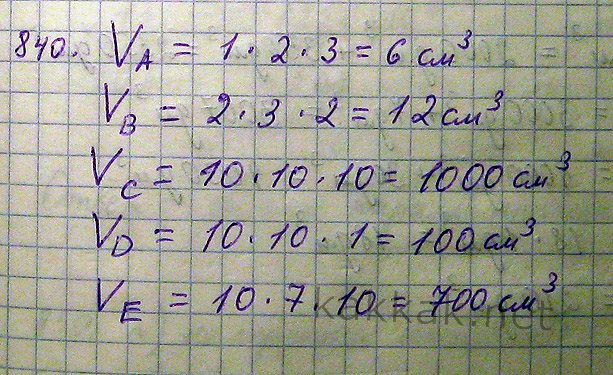 840. V_A = 1 · 2 · 3 = 6 см³
V_B = 2 · 3 · 2 = 12 см³
V_C = 10 · 10 · 10 = 1000 см³
V_D = 10 · 10 · 1 = 100 см³
V_E = 10 · 7 · 10 = 700 см³
kakkak.net